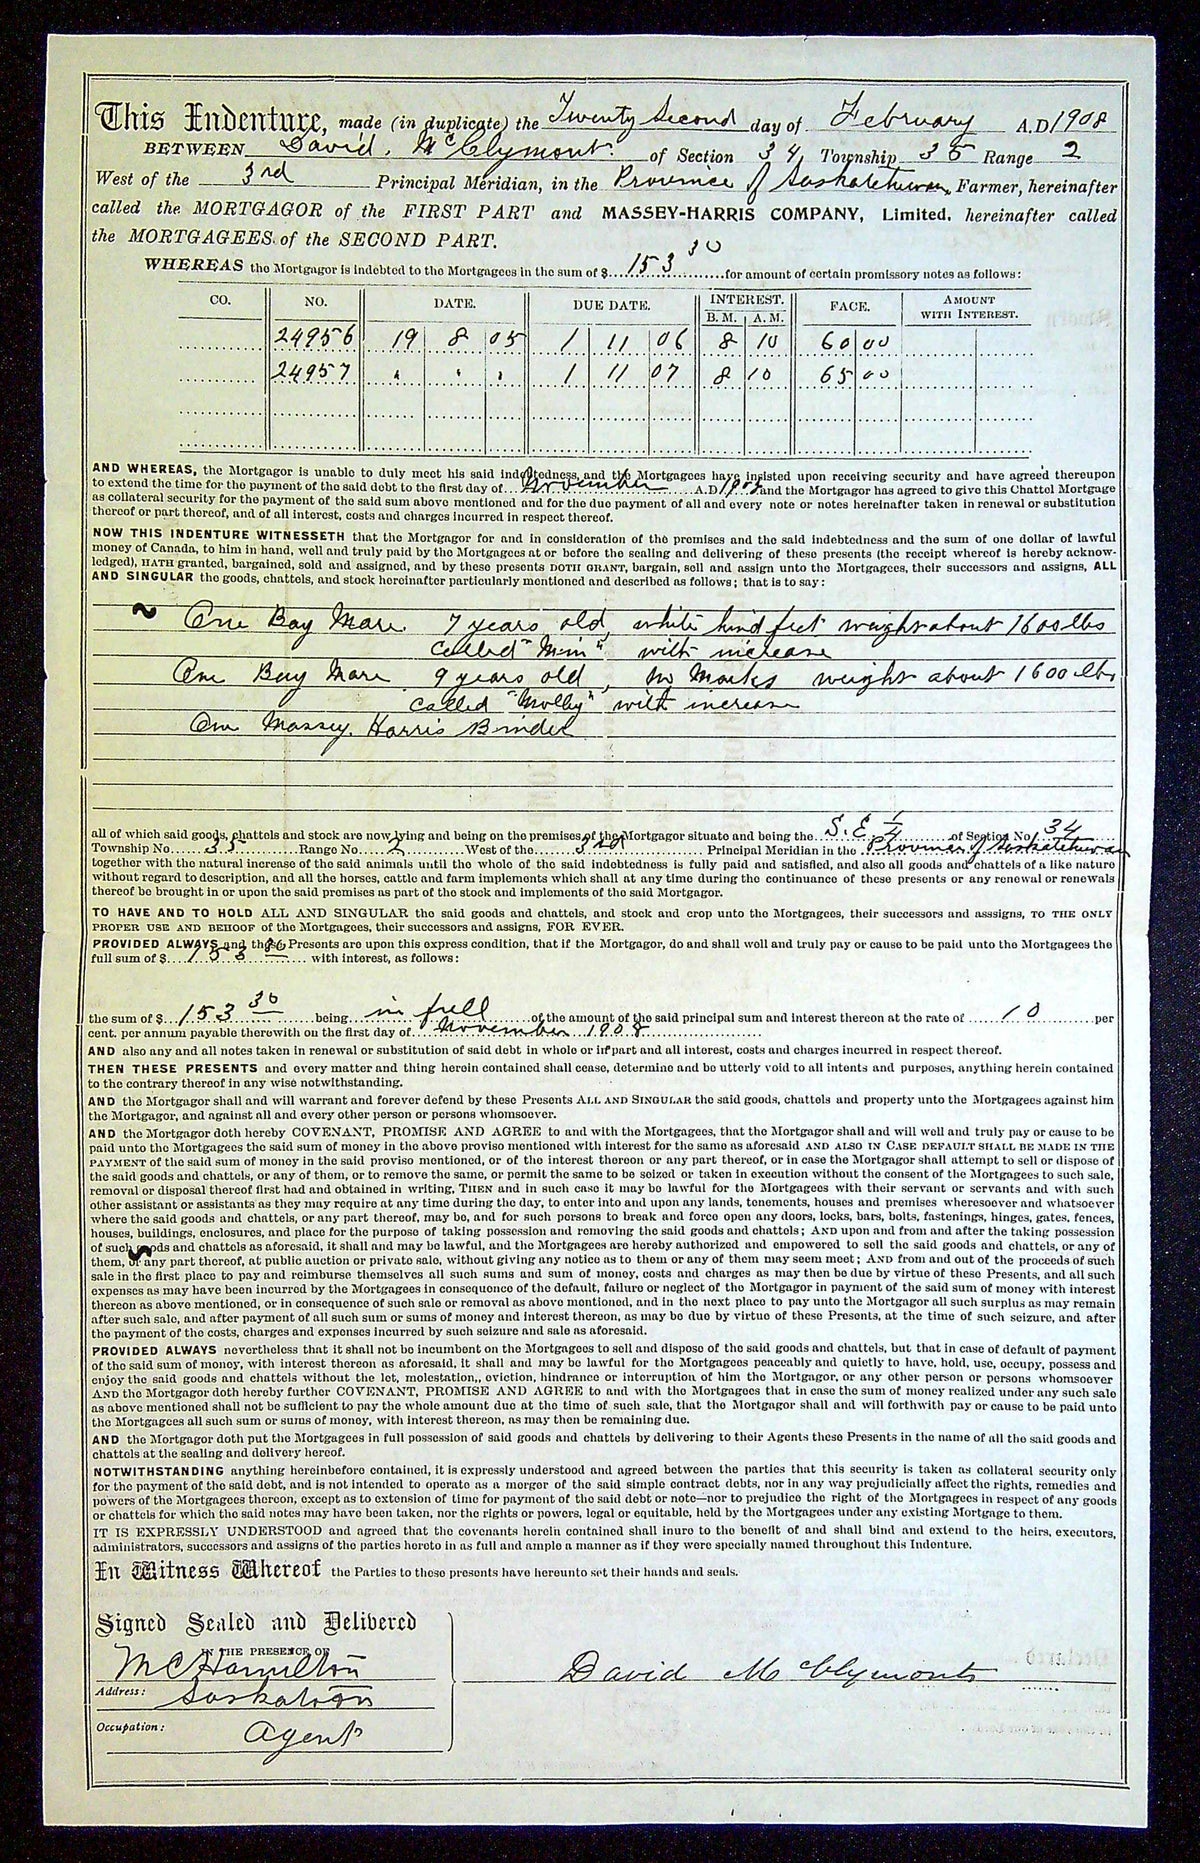 This Indenture, made (in duplicate) the Twenty Second day of February A.D 1908
BETWEEN David McClymont of Section 34 Township 35 Range 2
West of the 3rd Principal Meridian, in the Province of Saskatchewan, Farmer, hereinafter
called the MORTGAGOR of the FIRST PART and MASSEY-HARRIS COMPANY, Limited, hereinafter called
the MORTGAGEES of the SECOND PART.
WHEREAS the Mortgagor is indebted to the Mortgagees in the sum of $ 153 30 for amount of certain promissory notes as follows:
CO. NO. DATE. DUE DATE. INTEREST. FACE. AMOUNT WITH INTEREST.
B. M. A. M.
24956 19 8 05 1 11 06 8 10 60 00
24957 " " " 1 11 07 8 10 65 00
AND WHEREAS, the Mortgagor is unable to duly meet his said indebtedness, and the Mortgagees have insisted upon receiving security and have agreed thereupon
to extend the time for the payment of the said debt to the first day of November A.D 1908 and the Mortgagor has agreed to give this Chattel Mortgage
as collateral security for the payment of the said sum above mentioned and for the due payment of all and every note or notes hereinafter taken in renewal or substitution
thereof or part thereof, and of all interest, costs and charges incurred in respect thereof.
NOW THIS INDENTURE WITNESSETH that the Mortgagor for and in consideration of the premises and the said indebtedness and the sum of one dollar of lawful
money of Canada, to him in hand, well and truly paid by the Mortgagees at or before the sealing and delivering of these presents (the receipt whereof is hereby acknow-
ledged), HATH granted, bargained, sold and assigned, and by these presents DOTH GRANT, bargain, sell and assign unto the Mortgagees, their successors and assigns, ALL
AND SINGULAR the goods, chattels, and stock hereinafter particularly mentioned and described as follows; that is to say:
One Bay Mare 7 years old, white hind feet weight about 1600 lbs
called "Min" with increase
One Bay Mare 9 years old, no Marks weight about 1600 lbs
called "Molly" with increase
One Massey Harris Binder
all of which said goods, chattels and stock are now lying and being on the premises of the Mortgagor situate and being the S.E 1/4 of Section No. 34
Township No. 35 Range No. 2 West of the 3rd Principal Meridian in the Province of Saskatchewan
together with the natural increase of the said animals until the whole of the said indebtedness is fully paid and satisfied, and also all goods and chattels of a like nature
without regard to description, and all the horses, cattle and farm implements which shall at any time during the continuance of these presents or any renewal or renewals
thereof be brought in or upon the said premises as part of the stock and implements of the said Mortgagor.
TO HAVE AND TO HOLD ALL AND SINGULAR the said goods and chattels, and stock and crop unto the Mortgagees, their successors and asssigns, TO THE ONLY
PROPER USE AND BEHOOF of the Mortgagees, their successors and assigns, FOR EVER.
PROVIDED ALWAYS and these Presents are upon this express condition, that if the Mortgagor, do and shall well and truly pay or cause to be paid unto the Mortgagees the
full sum of $ 153 30 with interest, as follows:
the sum of $ 153 30 being in full of the amount of the said principal sum and interest thereon at the rate of 10 per
cent. per annum payable therewith on the first day of November 1908
AND also any and all notes taken in renewal or substitution of said debt in whole or in part and all interest, costs and charges incurred in respect thereof.
THEN THESE PRESENTS and every matter and thing herein contained shall cease, determine and be utterly void to all intents and purposes, anything herein contained
to the contrary thereof in any wise notwithstanding.
AND the Mortgagor shall and will warrant and forever defend by these Presents ALL AND SINGULAR the said goods, chattels and property unto the Mortgagees against him
the Mortgagor, and against all and every other person or persons whomsoever.
AND the Mortgagor doth hereby COVENANT, PROMISE AND AGREE to and with the Mortgagees, that the Mortgagor shall and will well and truly pay or cause to be
paid unto the Mortgagees the said sum of money in the above proviso mentioned with interest for the same as aforesaid AND ALSO IN CASE DEFAULT SHALL BE MADE IN THE
PAYMENT of the said sum of money in the said proviso mentioned, or of the interest thereon or any part thereof, or in case the Mortgagor shall attempt to sell or dispose of
the said goods and chattels, or any of them, or to remove the same, or permit the same to be seized or taken in execution without the consent of the Mortgagees to such sale,
removal or disposal thereof first had and obtained in writing, THEN and in such case it may be lawful for the Mortgagees with their servant or servants and with such
other assistant or assistants as they may require at any time during the day, to enter into and upon any lands, tenements, houses and premises wheresoever and whatsoever
where the said goods and chattels, or any part thereof, may be, and for such persons to break and force open any doors, locks, bars, bolts, fastenings, hinges, gates, fences,
houses, buildings, enclosures, and place for the purpose of taking possession and removing the said goods and chattels; AND upon and from and after the taking possession
of such goods and chattels as aforesaid, it shall and may be lawful, and the Mortgagees are hereby authorized and empowered to sell the said goods and chattels, or any of
them, or any part thereof, at public auction or private sale, without giving any notice as to them or any of them may seem meet; AND from and out of the proceeds of such
sale in the first place to pay and reimburse themselves all such sums and sum of money, costs and charges as may then be due by virtue of these Presents, and all such
expenses as may have been incurred by the Mortgagees in consequence of the default, failure or neglect of the Mortgagor in payment of the said sum of money with interest
thereon as above mentioned, or in consequence of such sale or removal as above mentioned, and in the next place to pay unto the Mortgagor all such surplus as may remain
after such sale, and after payment of all such sum or sums of money and interest thereon, as may be due by virtue of these Presents, at the time of such seizure, and after
the payment of the costs, charges and expenses incurred by such seizure and sale as aforesaid.
PROVIDED ALWAYS nevertheless that it shall not be incumbent on the Mortgagees to sell and dispose of the said goods and chattels, but that in case of default of payment
of the said sum of money, with interest thereon as aforesaid, it shall and may be lawful for the Mortgagees peaceably and quietly to have, hold, use, occupy, possess and
enjoy the said goods and chattels without the let, molestation,, eviction, hindrance or interruption of him the Mortgagor, or any other person or persons whomsoever
AND the Mortgagor doth hereby further COVENANT, PROMISE AND AGREE to and with the Mortgagees that in case the sum of money realized under any such sale
as above mentioned shall not be sufficient to pay the whole amount due at the time of such sale, that the Mortgagor shall and will forthwith pay or cause to be paid unto
the Mortgagees all such sum or sums of money, with interest thereon, as may then be remaining due.
AND the Mortgagor doth put the Mortgagees in full possession of said goods and chattels by delivering to their Agents these Presents in the name of all the said goods and
chattels at the sealing and delivery hereof.
NOTWITHSTANDING anything hereinbefore contained, it is expressly understood and agreed between the parties that this security is taken as collateral security only
for the payment of the said debt, and is not intended to operate as a merger of the said simple contract debts, nor in any way prejudicially affect the rights, remedies and
powers of the Mortgagees thereon, except as to extension of time for payment of the said debt or note—nor to prejudice the right of the Mortgagees in respect of any goods
or chattels for which the said notes may have been taken, nor the rights or powers, legal or equitable, held by the Mortgagees under any existing Mortgage to them.
IT IS EXPRESSLY UNDERSTOOD and agreed that the covenants herein contained shall inure to the benefit of and shall bind and extend to the heirs, executors,
administrators, successors and assigns of the parties hereto in as full and ample a manner as if they were specially named throughout this Indenture.
In Witness Whereof the Parties to these presents have hereunto set their hands and seals.
Signed Sealed and Delivered
IN THE PRESENCE OF
M C Hamilton
Address: Saskatoon
Occupation: Agent
David McClymont